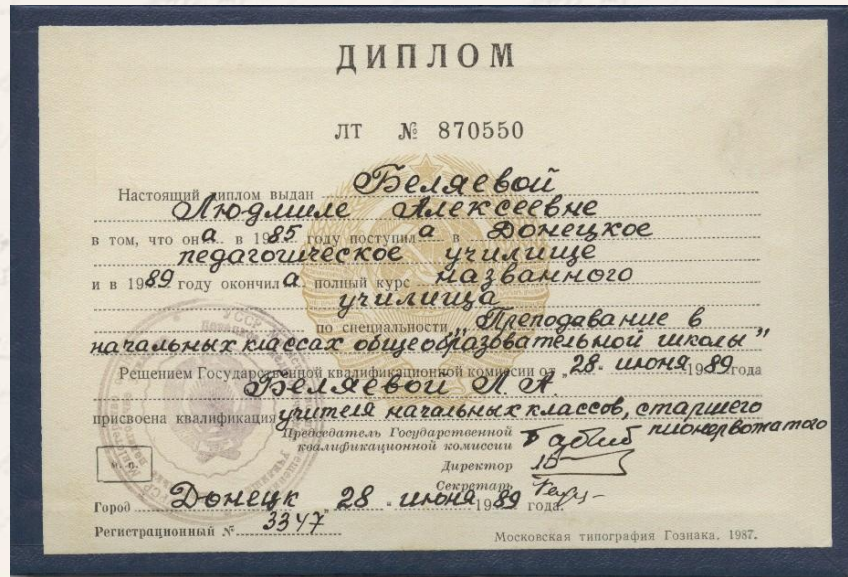 ДИПЛОМ
ЛТ № 870550
Настоящий диплом выдан Беляевой
Людмиле Алексеевне
в том, что она в 1985 году поступила в Донецкое
педагогическое училище
и в 1989 году окончила полный курс названного
училища
по специальности „Преподавание в
начальных классах общеобразовательной школы"
Решением Государственной квалификационной комиссии от „28" июня 1989 года
Беляевой Л. А.
присвоена квалификация учителя начальных классов, старшего
пионервожатого
Председатель Государственной
квалификационной комиссии
Директор
Секретарь
М. П.
Город Донецк „28" июня 1989 года.
Регистрационный № 3347
Московская типография Гознака. 1987.